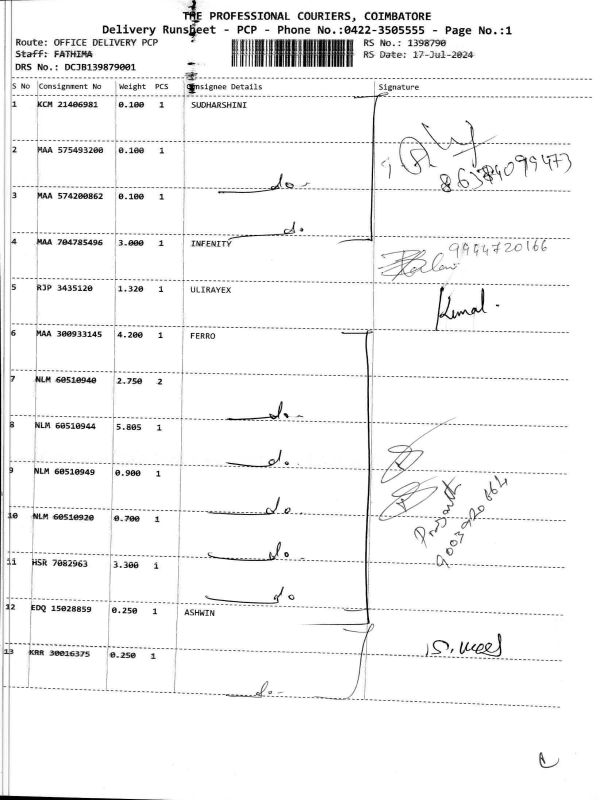 THE PROFESSIONAL COURIERS, COIMBATORE
Delivery Runsheet - PCP - Phone No.:0422-3505555 - Page No.:1
Route: OFFICE DELIVERY PCP RS No.: 1398790
Staff: FATHIMA RS Date: 17-Jul-2024
DRS No.: DCJB139879001
S No Consignment No Weight PCS Consignee Details Signature
1 KCM 21406981 0.100 1 SUDHARSHINI
2 MAA 575493200 0.100 1
do-
3 MAA 574200862 0.100 1
do.
4 MAA 704785496 3.000 1 INFENITY 9944720166
5 RJP 3435120 1.320 1 ULIRAYEX Kemal.
6 MAA 300933145 4.200 1 FERRO
7 NLM 60510940 2.750 2
do-
8 NLM 60510944 5.805 1
do.
9 NLM 60510949 0.900 1
do.
10 NLM 60510920 0.700 1
do.
11 HSR 7082963 3.300 1
do
12 EDQ 15028859 0.250 1 ASHWIN
13 KRR 30016375 0.250 1
do-